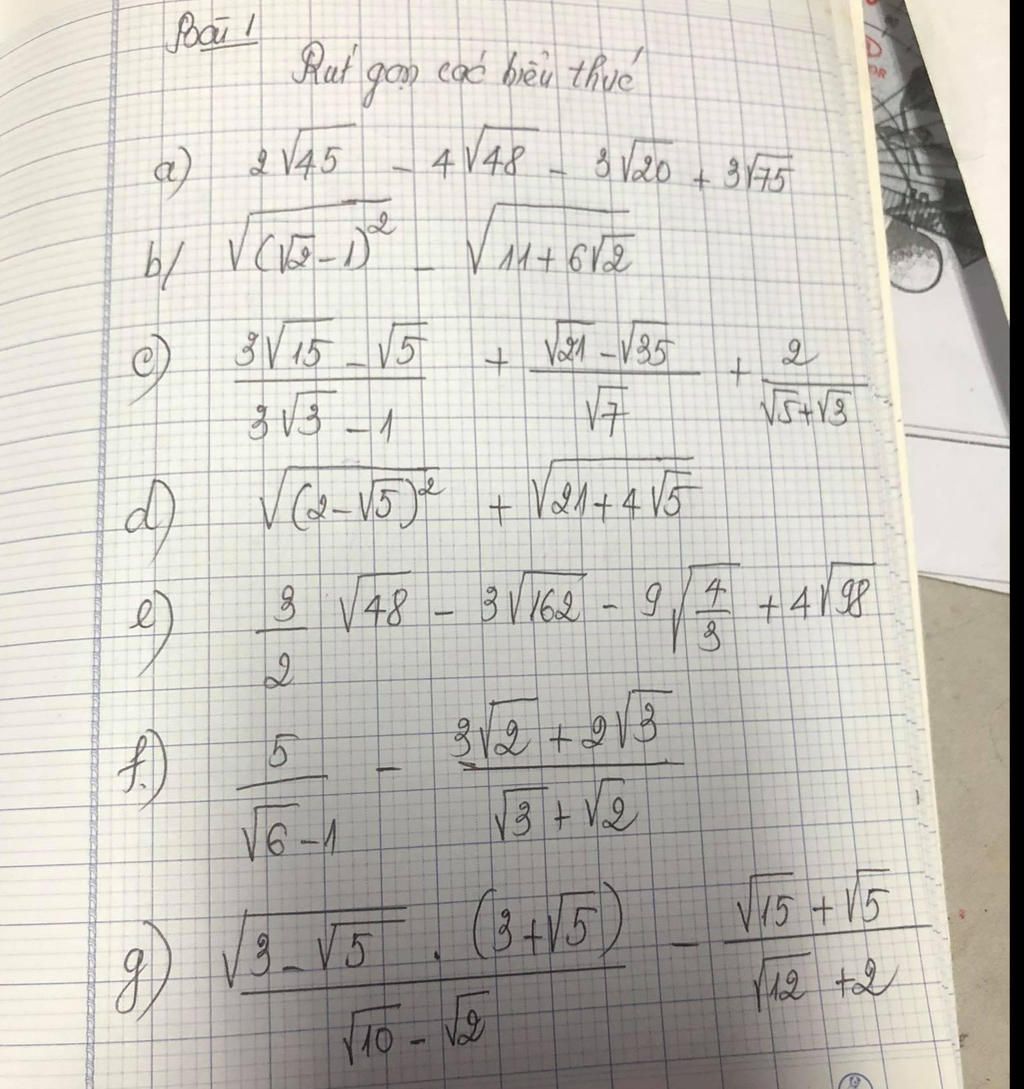 Bài 1
Rút gọn các biểu thức
a) 2√45 - 4√48 - 3√20 + 3√75
b/ √((√2-1)²) - √(11+6√2)
c) (3√15 - √5)/(3√3 - 1) + (√21 - √35)/√7 + 2/(√5+√3)
d) √((2-√5)²) + √(21+4√5)
e) 3/2 √48 - 3√162 - 9√(4/3) + 4√98
f.) 5/(√6 - 1) - (3√2 + 2√3)/(√3 + √2)
g) (√(3-√5) . (3+√5))/(√10 - √2) - (√15 + √5)/(√12 + 2)